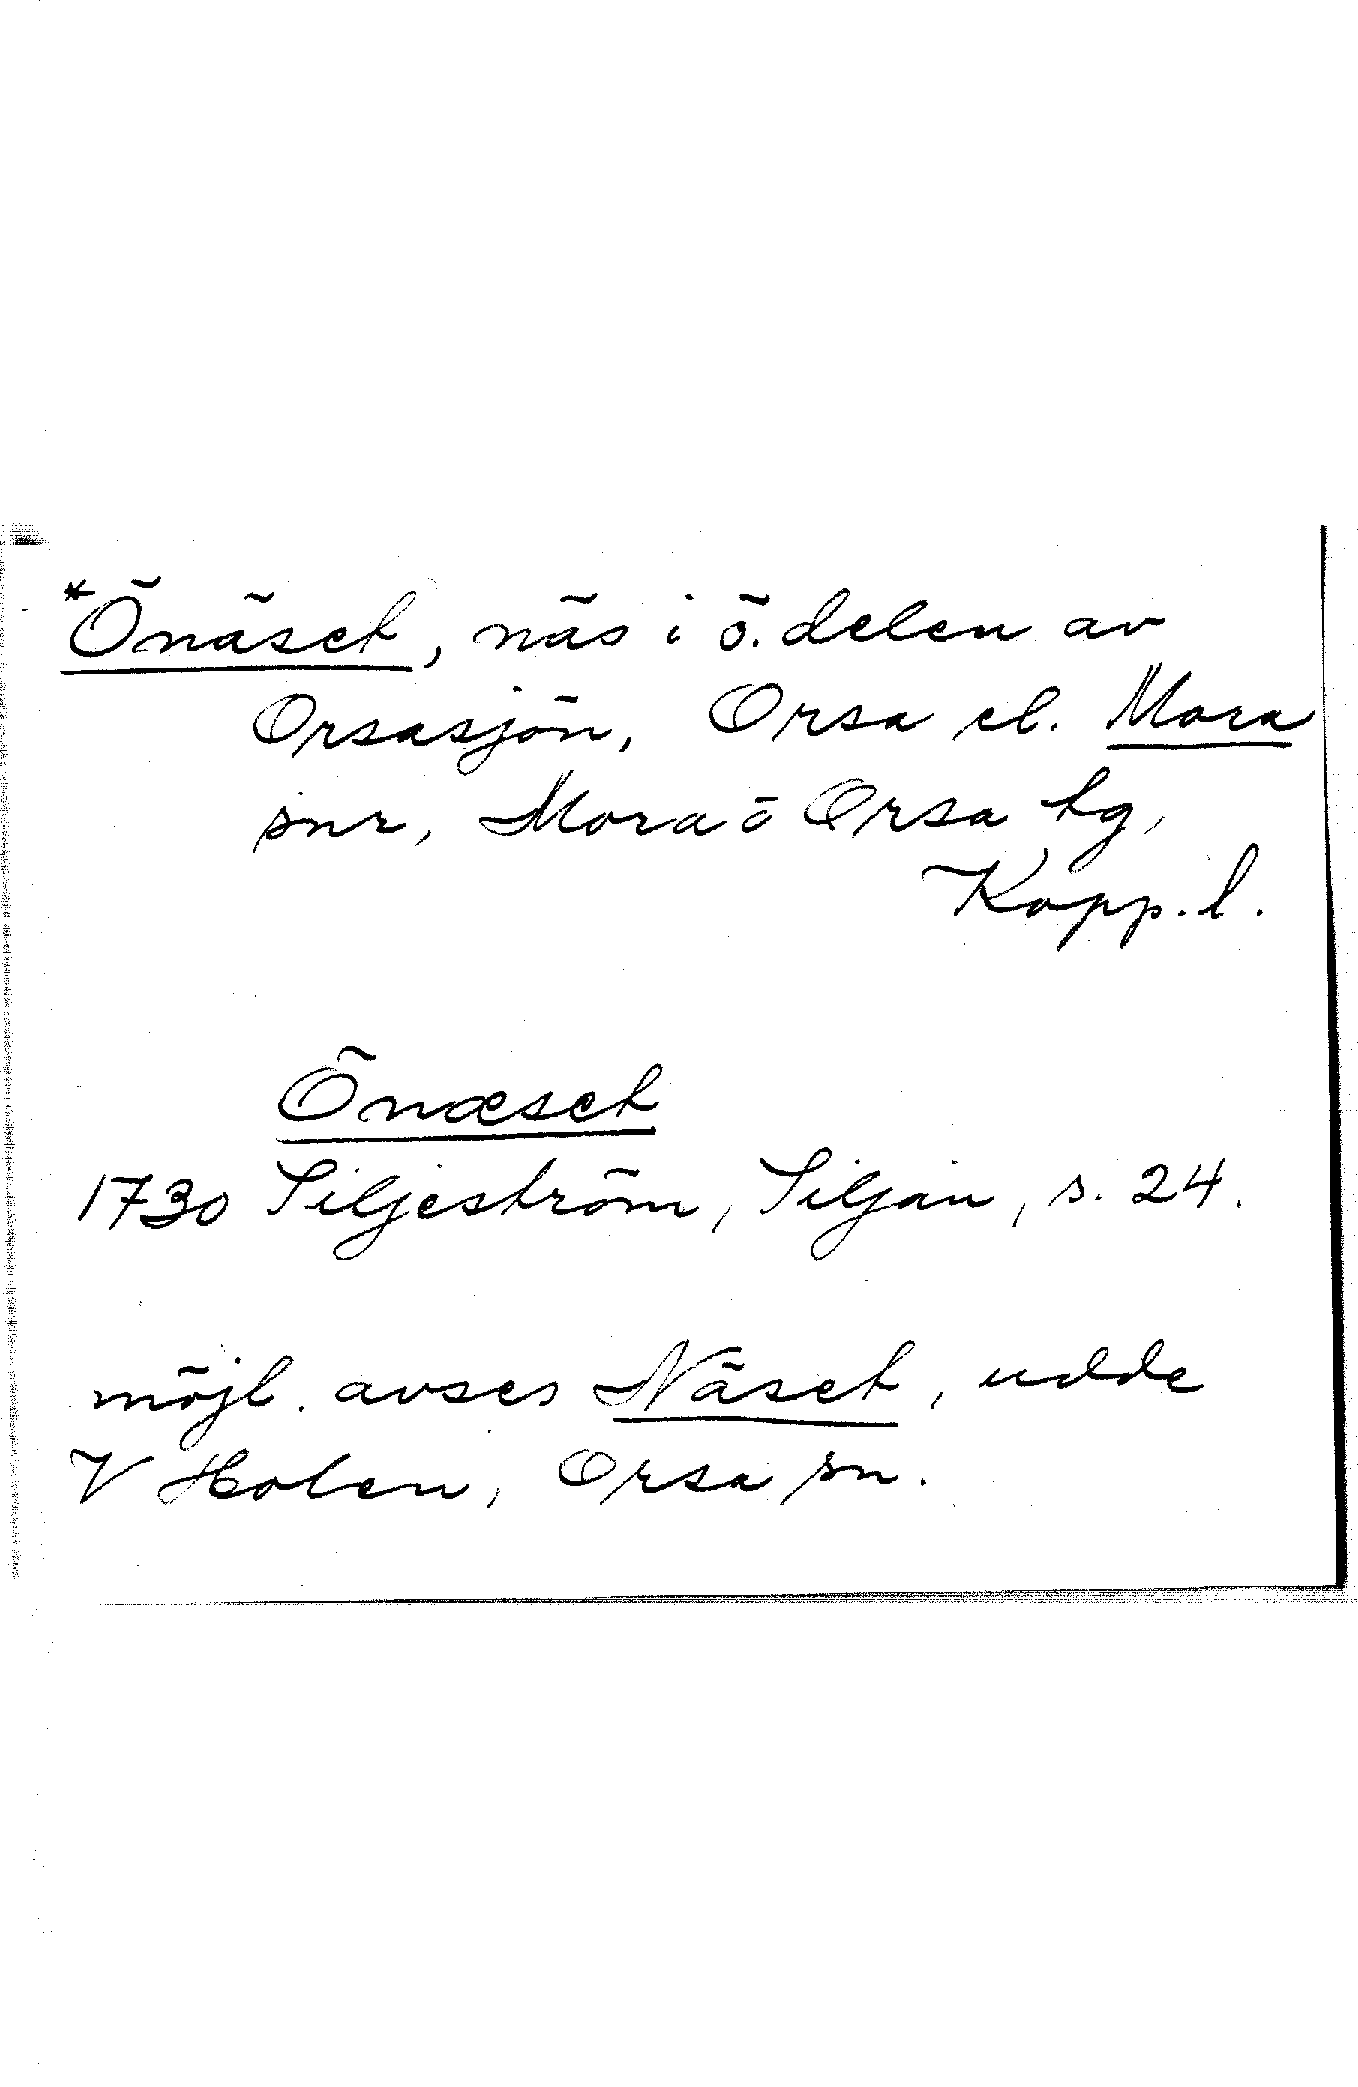 *Önäset, näs i ö. delen av
Orsasjön, Orsa el. Mora
snr, Mora o Orsa tg,
Kopp. l.
Önæset
1730 Siljeström, Siljan, s. 24.
möjl. avses Näset, udde
V Holen, Orsa sn.